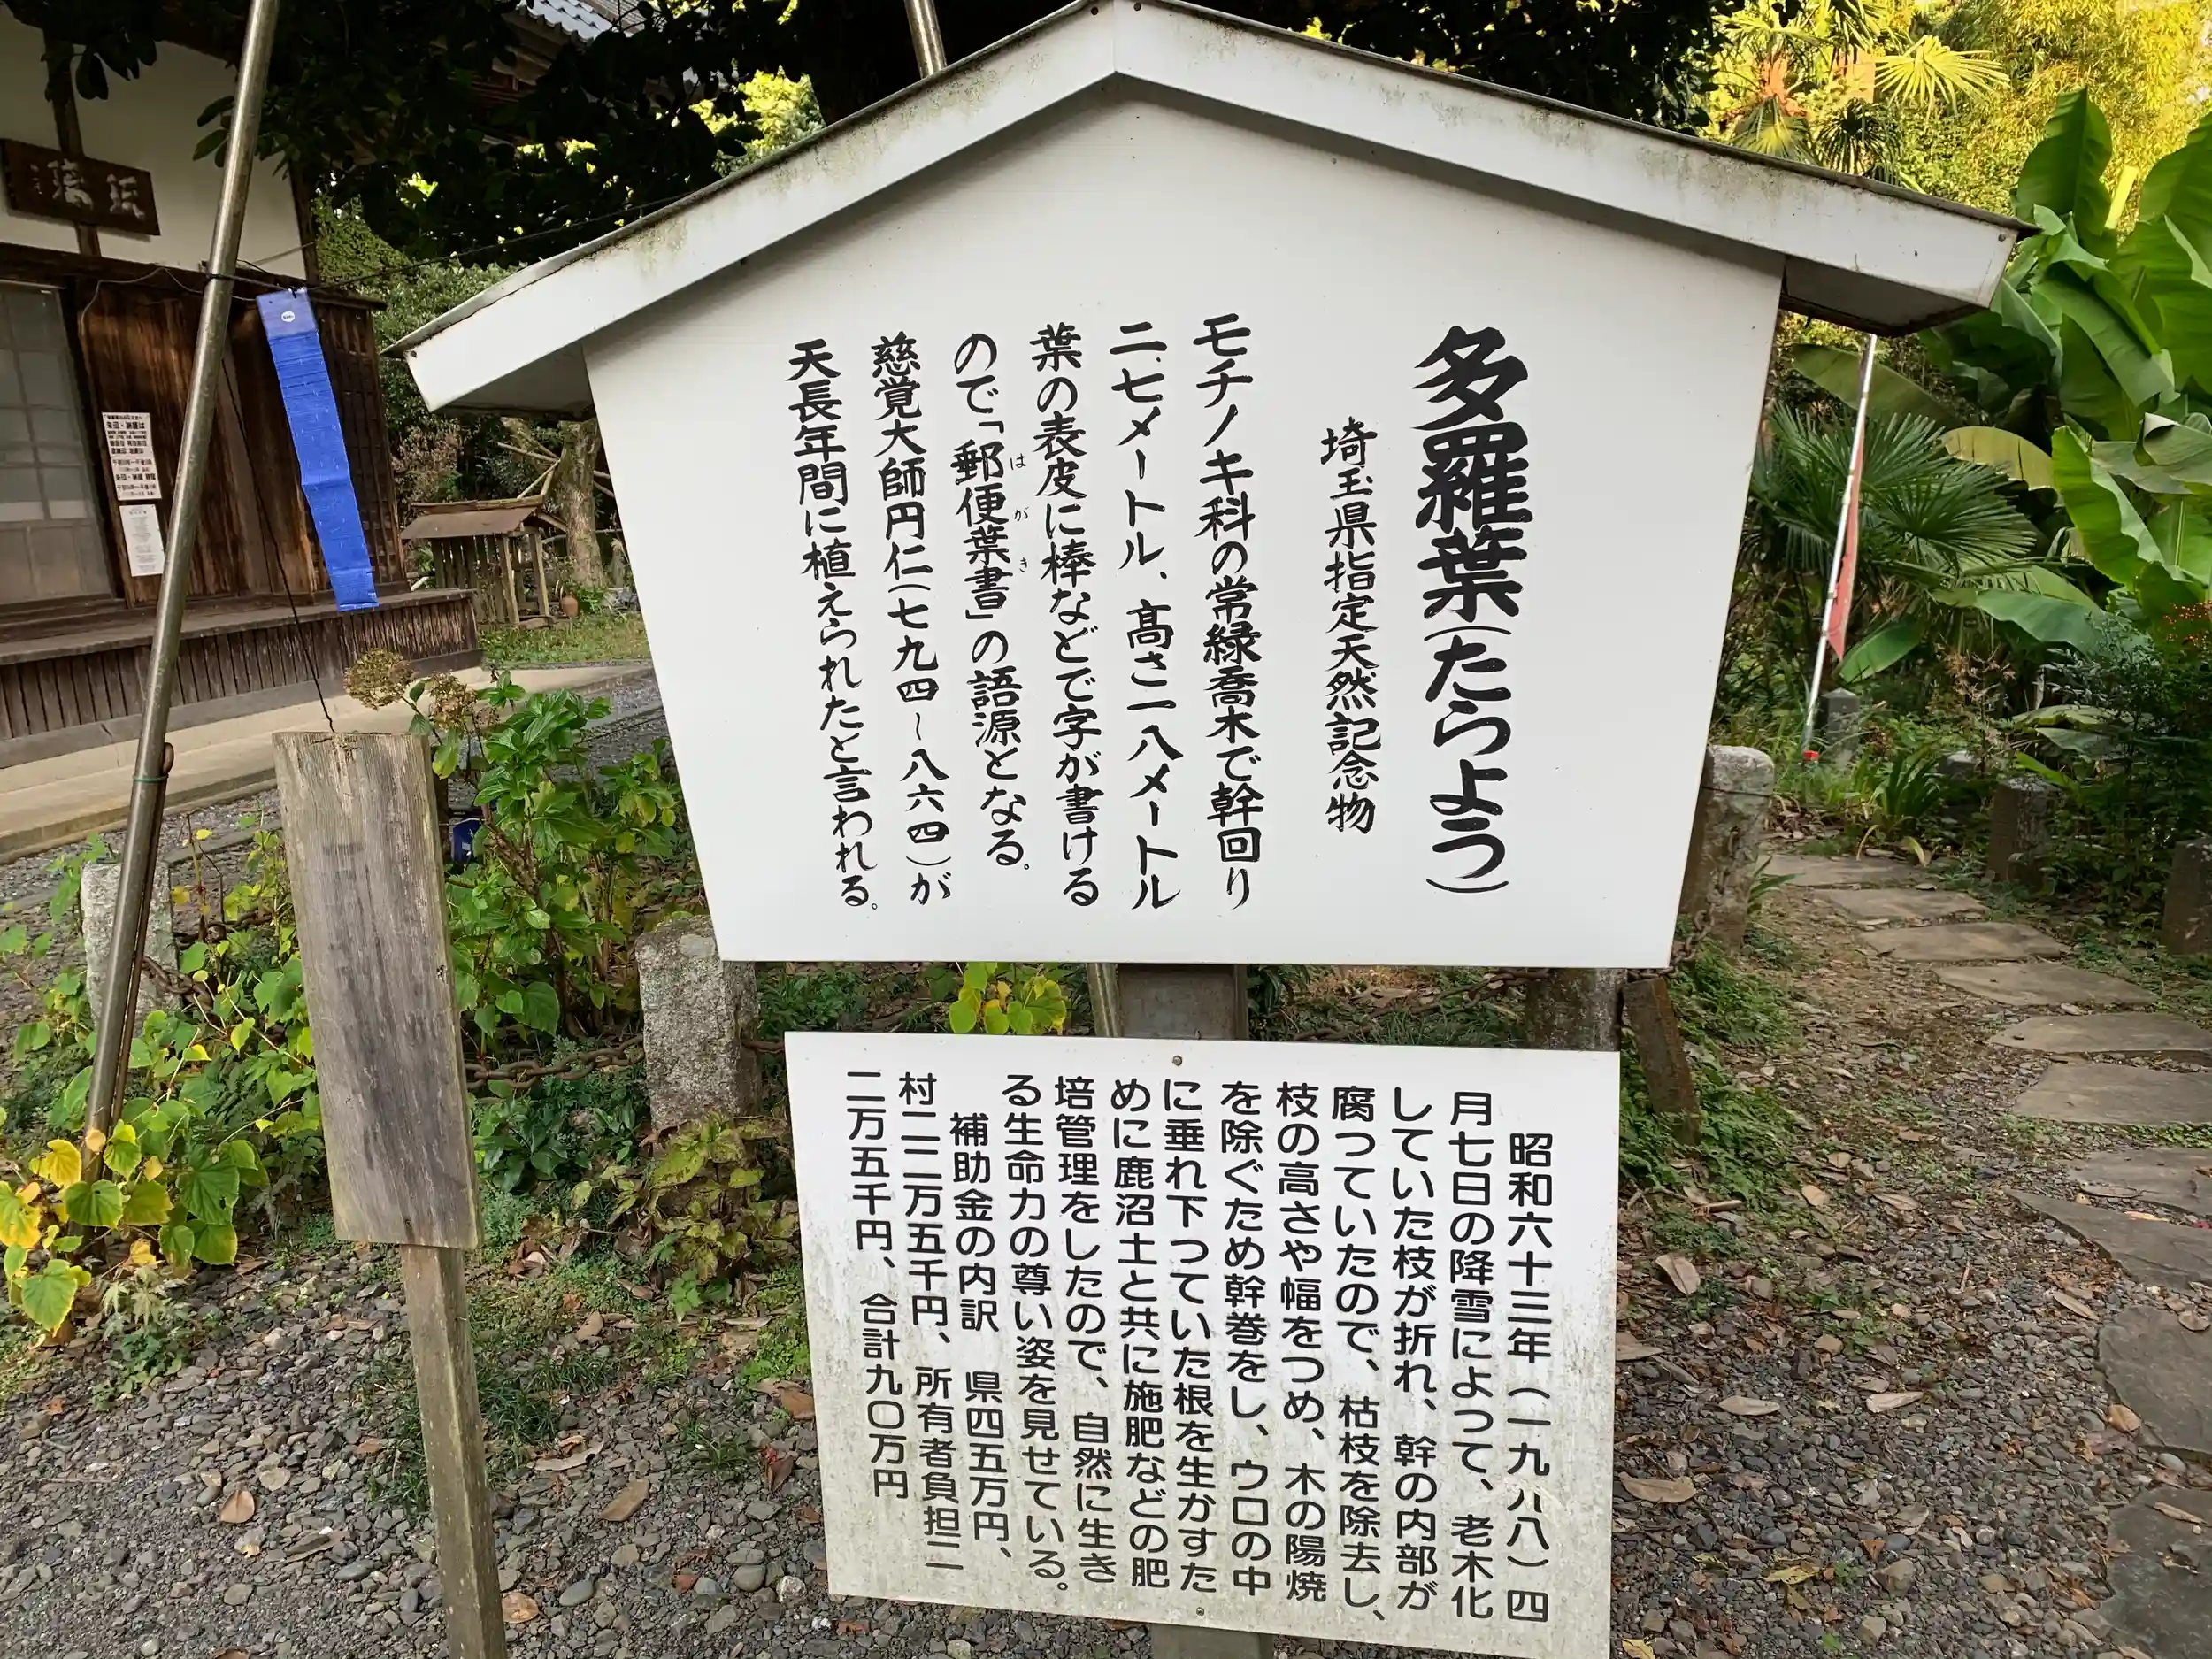 多羅葉(たらよう)
埼玉県指定天然記念物
モチノキ科の常緑喬木で幹回り
二.七メートル、高さ一八メートル
葉の表皮に棒などで字が書ける
ので「郵便葉書」の語源となる。
はがき
慈覚大師円仁(七九四～八六四)が
天長年間に植えられたと言われる。
昭和六十三年(一九八八)四
月七日の降雪によって、老木化
していた枝が折れ、幹の内部が
腐つていたので、枯枝を除去し、
枝の高さや幅をつめ、木の陽焼
を除ぐため幹巻をし、ウロの中
に垂れ下つていた根を生かすた
めに鹿沼土と共に施肥などの肥
培管理をしたので、自然に生き
る生命力の尊い姿を見せている。
補助金の内訳 県四五万円、
村二二万五千円、所有者負担二
二万五千円、合計九〇万円